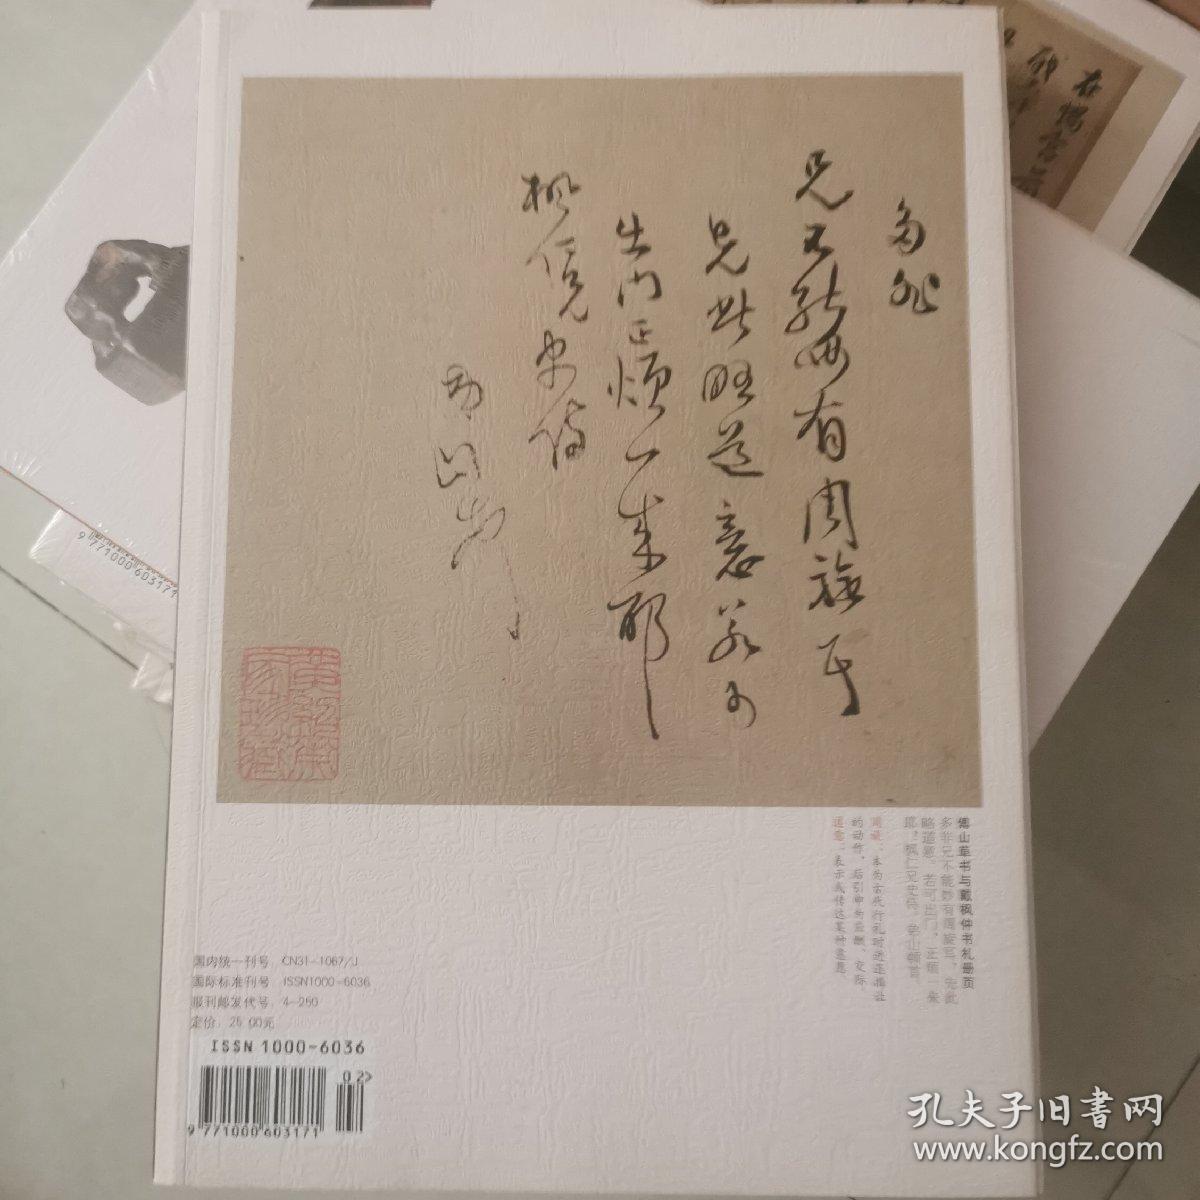 多非
兄不能妙有周旋耳
兄此略道意若可
出门正烦一来耶
枫仁兄史侍
弟山顿首
傅山草书与戴枫仲书札册页
多非兄不能妙有周旋耳。先此
略道意。若可出门，正烦一来
耶。枫仁兄史侍。弟山顿首。
周旋：本为古代行礼时进退揖让
的动作，后引申为应酬、交际。
道意：表示或传达某种意愿。
国内统一刊号：CN31-1067/J
国际标准刊号：ISSN1000-6036
报刊邮发代号：4-250
定价：25.00元
ISSN 1000-6036
02>
9 771000 603171
9 771000 603171
孔夫子旧書网
www.kongfz.com